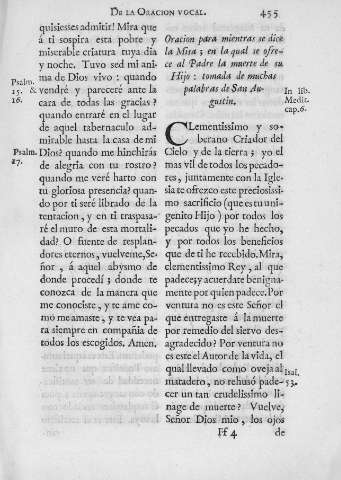 DE LA ORACION VOCAL. 455
quisiesses admitir! Mira que
á ti sospira esta pobre y
miserable criatura tuya dia
y noche. Tuvo sed mi ani-
ma de DIOS vivo : quando
vendré y pareceré ante la
cara de todas las gracias?
quando entraré en el lugar
de aquel tabernaculo ad-
mirable hasta la casa de mi
Dios? quando me hinchirás
de alegria con tu rostro?
quando me veré harto con
tu gloriosa presencia? quan-
do por ti seré librado de la
tentacion, y en ti traspasa-
ré el muro de esta mortali-
dad? O fuente de resplan-
dores eternos, vuelveme, Se-
ñor, á aquel abysmo de
donde procedí; donde te
conozca de la manera que
me conociste, y te ame co-
mo me amaste, y te vea pa-
ra siempre en compañia de
todos los escogidos. Amen.
Psalm.
15. &
16.
Psalm.
27.
Oracion para mientras se dice
la Misa; en la qual se ofre-
ce al Padre la muerte de su
Hijo : tomada de muchas
palabras de San Au-
gustin.
In lib.
Medit.
cap.6.
CLementissimo y so-
berano Criador del
Cielo y de la tierra; yo el
mas vil de todos los pecado-
res, juntamente con la Igle-
sia te ofrezco este preciosissi-
mo sacrificio (que es tu uni-
genito Hijo) por todos los
pecados que yo he hecho,
y por todos los beneficios
que de ti he recebido. Mira,
clementissimo Rey, al que
padece; y acuerdate benigna-
mente por quien padece. Por
ventura no es este Señor el
que entregaste á la muerte
por remedio del siervo des-
agradecido? Por ventura no
es este el Autor de la vida, el
qual llevado como oveja al
matadero, no rehusó pade-
cer un tan crudelissimo li-
nage de muerte? Vuelve,
Señor Dios mio, los ojos
Isai.
53.
Ff 4 de